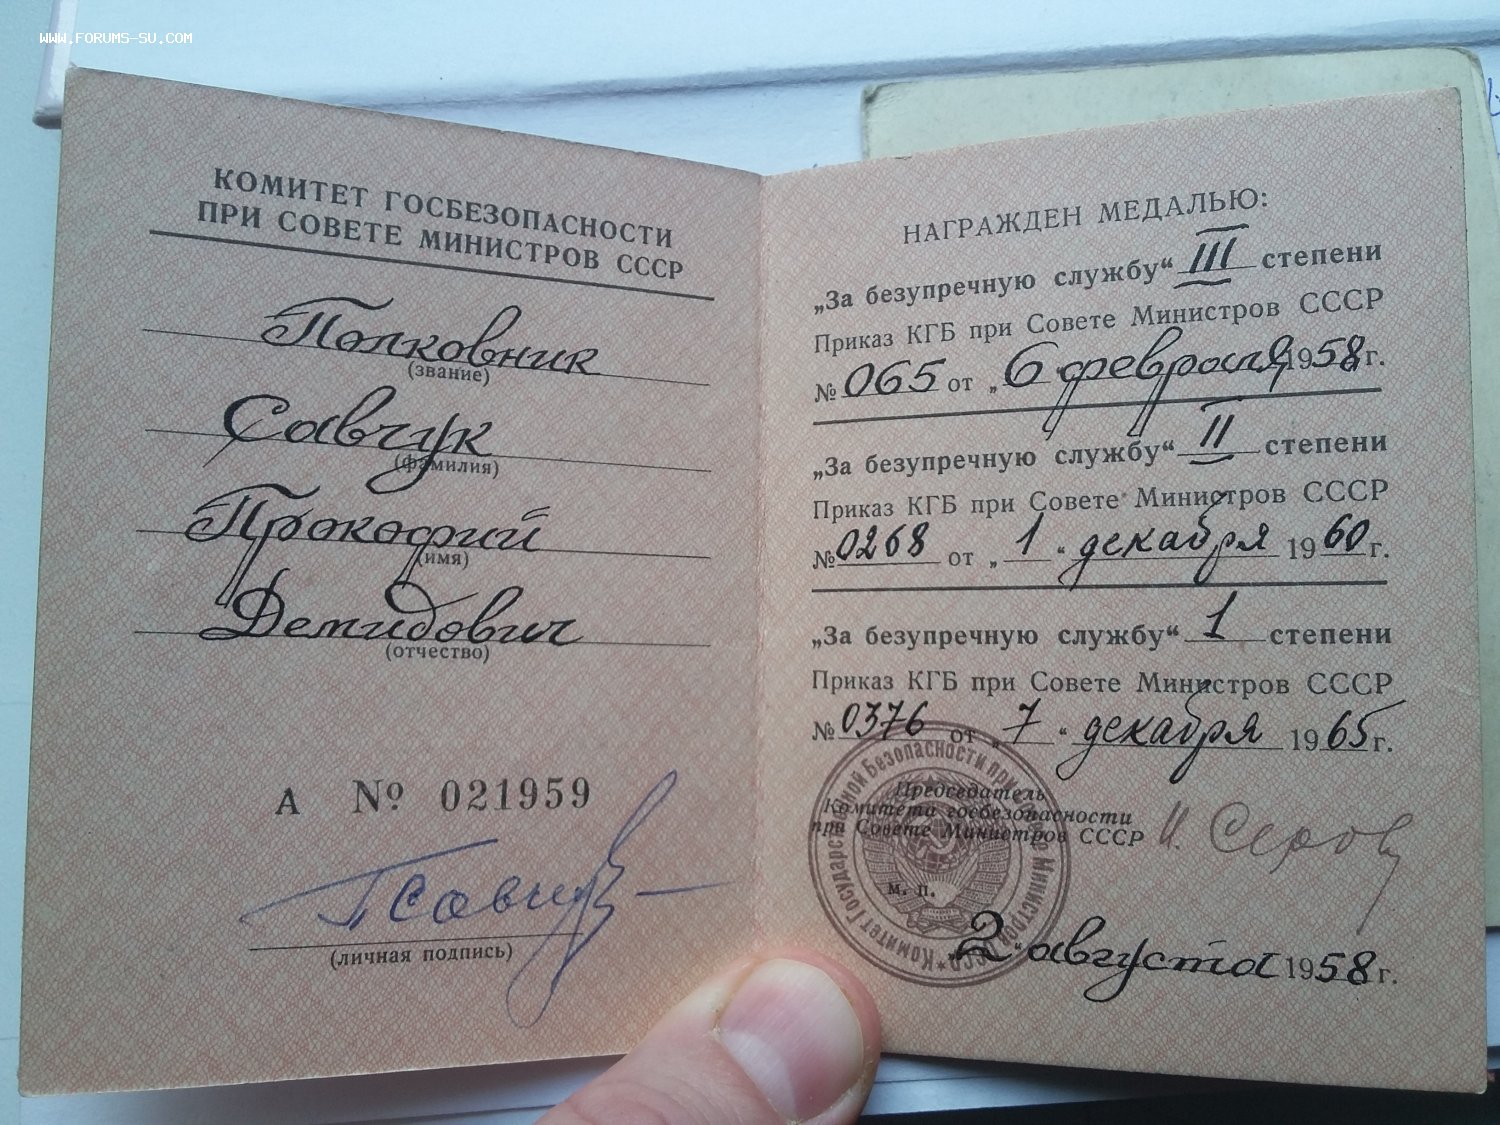 WWW.FORUMS-SU.COM
КОМИТЕТ ГОСБЕЗОПАСНОСТИ
ПРИ СОВЕТЕ МИНИСТРОВ СССР
Полковник
(звание)
Савчук
(фамилия)
Прокофий
(имя)
Демидович
(отчество)
А № 021959
ПСавчук
(личная подпись)
НАГРАЖДЕН МЕДАЛЬЮ:
„За безупречную службу“ III степени
Приказ КГБ при Совете Министров СССР
№ 065 от „6 февраля 1958 г.
„За безупречную службу“ II степени
Приказ КГБ при Совете Министров СССР
№ 0268 от „1“ декабря 1960 г.
„За безупречную службу“ 1 степени
Приказ КГБ при Совете Министров СССР
№ 0376 от „7“ декабря 1965 г.
Председатель
Комитета госбезопасности
при Совете Министров СССР И. Серов
м. п.
Комитет Государственной Безопасности при Совете Министров СССР
„2“ августа 1958 г.